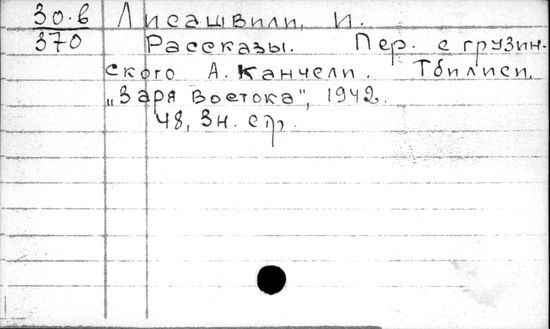 30.в Лисашвили, И.
370 Рассказы. Пер. с грузин-
ского А. Канчели. Тбилиси,
„Заря Востока", 1942.
48, 3н. стр.